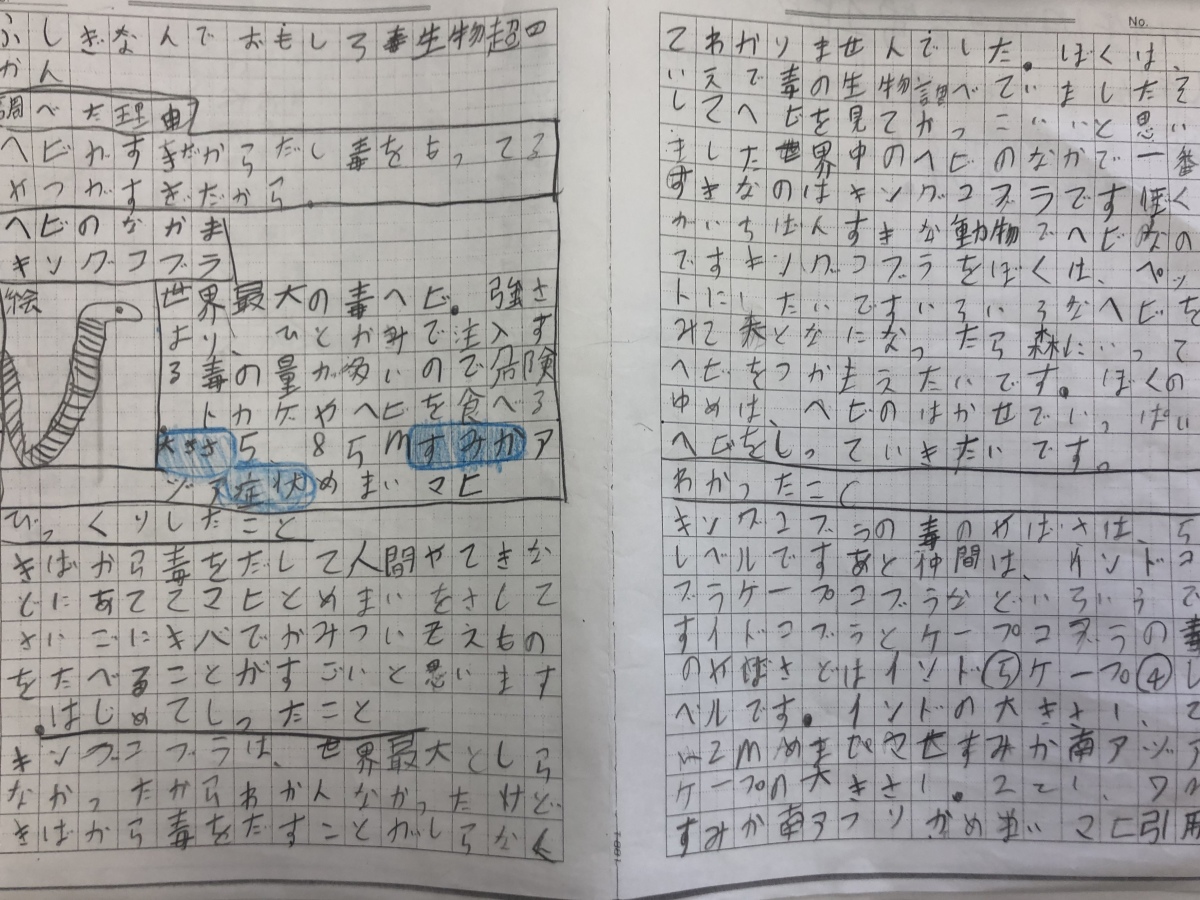 ふしぎなんでおもしろ毒生物超図
かん
調べた理由
ヘビがすきだからだし毒をもってる
やつがすきだから。
ヘビのなかま
キングコブラ
絵
世界最大の毒ヘビ。強さ
より、ひとかみで注入す
る毒の量が多いので危険
トカゲやヘビを食べる
大きさ5.85mすみかア
ジア症状めまいマヒ
びっくりしたこと
きばから毒をだして人間やてきか
どにあててマヒとめまいをさして
さいごにキバでかみついてえもの
をたべることがすごいと思います
。はじめてしったこと
キングコブラは、世界最大としら
なかったからわかんなかったけど
きばから毒をだすことがしらなく
No.
てわかりませんでした。ぼくは、
いえで毒の生物調べていましたそ
してヘビを見てかっこいいと思い
ました世界中のヘビのなかで一番
すきなのはキングコブラです ぼく
がいちばんすきな動物でヘビなの
ですキングコブラをぼくは、ペッ
トにしたいですいろいろなヘビを
みて大となになったら森にいって
ヘビをつかまえたいです。ぼくの
ゆめは、ヘビのはかせでいっぱい
ヘビをしっていきたいです。
わかったこと
キングコブラの毒のやばさは、5
レベルですあと仲間は、インドコ
ブラケープコブラなどいろいろで
すイドコブラとケープコブラの毒
のやばさとはインド⑤ケープ④レ
ベルです。インドの大きさ1.2
m2mめまいマヒすみか南アジア
ケープの大きさ1.2て1.7m
すみか南アフリカめまいマヒ引用